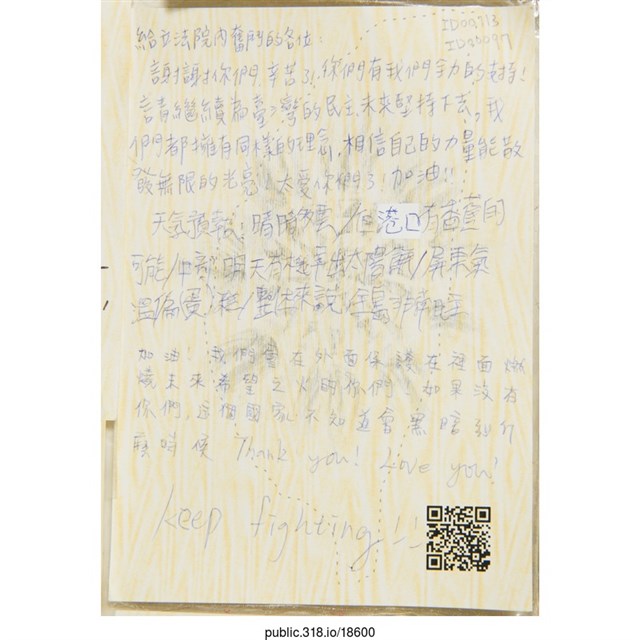 ID00713
ID80097
給立法院內奮鬥的各位:
謝謝你們,辛苦了!你們有我們全力的支持!
請繼續為臺灣的民主、未來堅持下去,我
們都擁有同樣的理念,相信自己的力量能散
發無限的光亮!太愛你們了!加油!!
天氣預報:晴時多雲/但港口有
可能/中部明天有太陽/屏東氣
溫偏/整体來說/全島非常
加油!我們會在外面保護在裡面燃
燒未來希望之火的你們,如果沒有
你們,這個國家不知道會黑暗到什
麼時候 Thank you! Love you!
keep fighting!!
public.318.io/18600